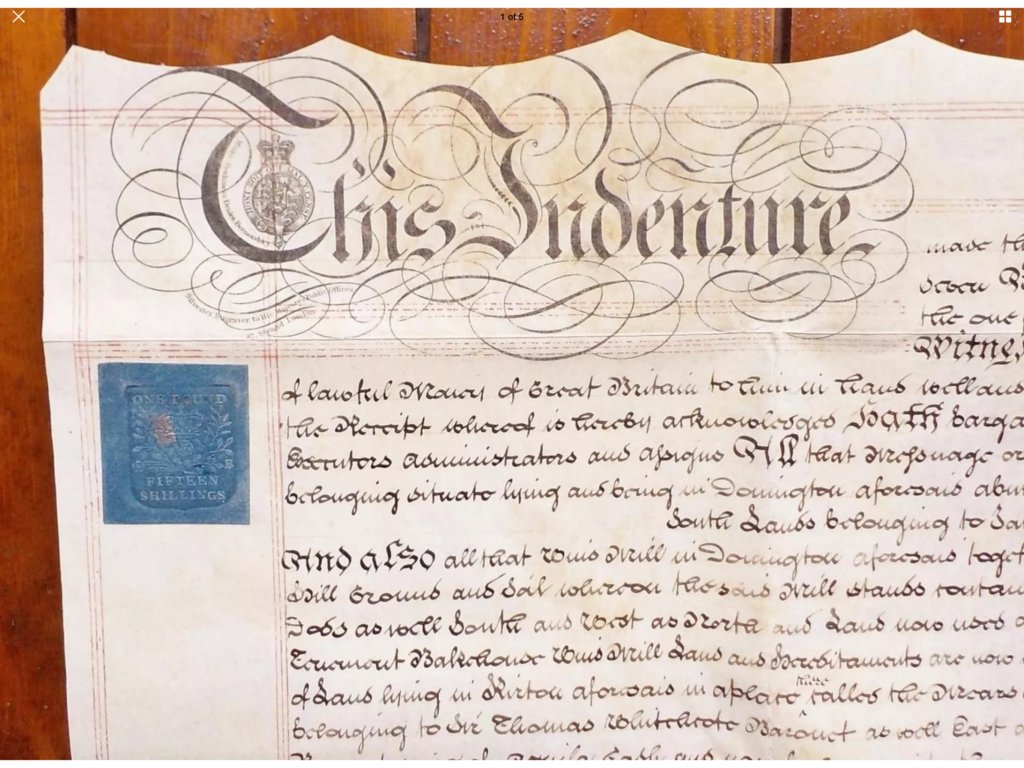 1 of 5
This Indenture
made th
seven
the one
Witnes
of lawful Money of Great Britain to him in hand well and
the Receipt whereof is hereby acknowledged Hath barga
Executors Administrators and Assigns All that Messuage or
belonging situate lying and being in Donington aforesaid abu
South Lands belonging to
And also all that Wind Mill in Donington aforesaid toget
Mill Ground and Soil whereon the said Mill stands contain
Dods as well South and West as North and Land now used
Tenement Bakehouse Wind Mill Land and Hereditaments are now
there
of Land lying in Kirton aforesaid in a place called the Mears
belonging to Sir Thomas Whitchcote Baronet as well East
ONE POUND
FIFTEEN
SHILLINGS